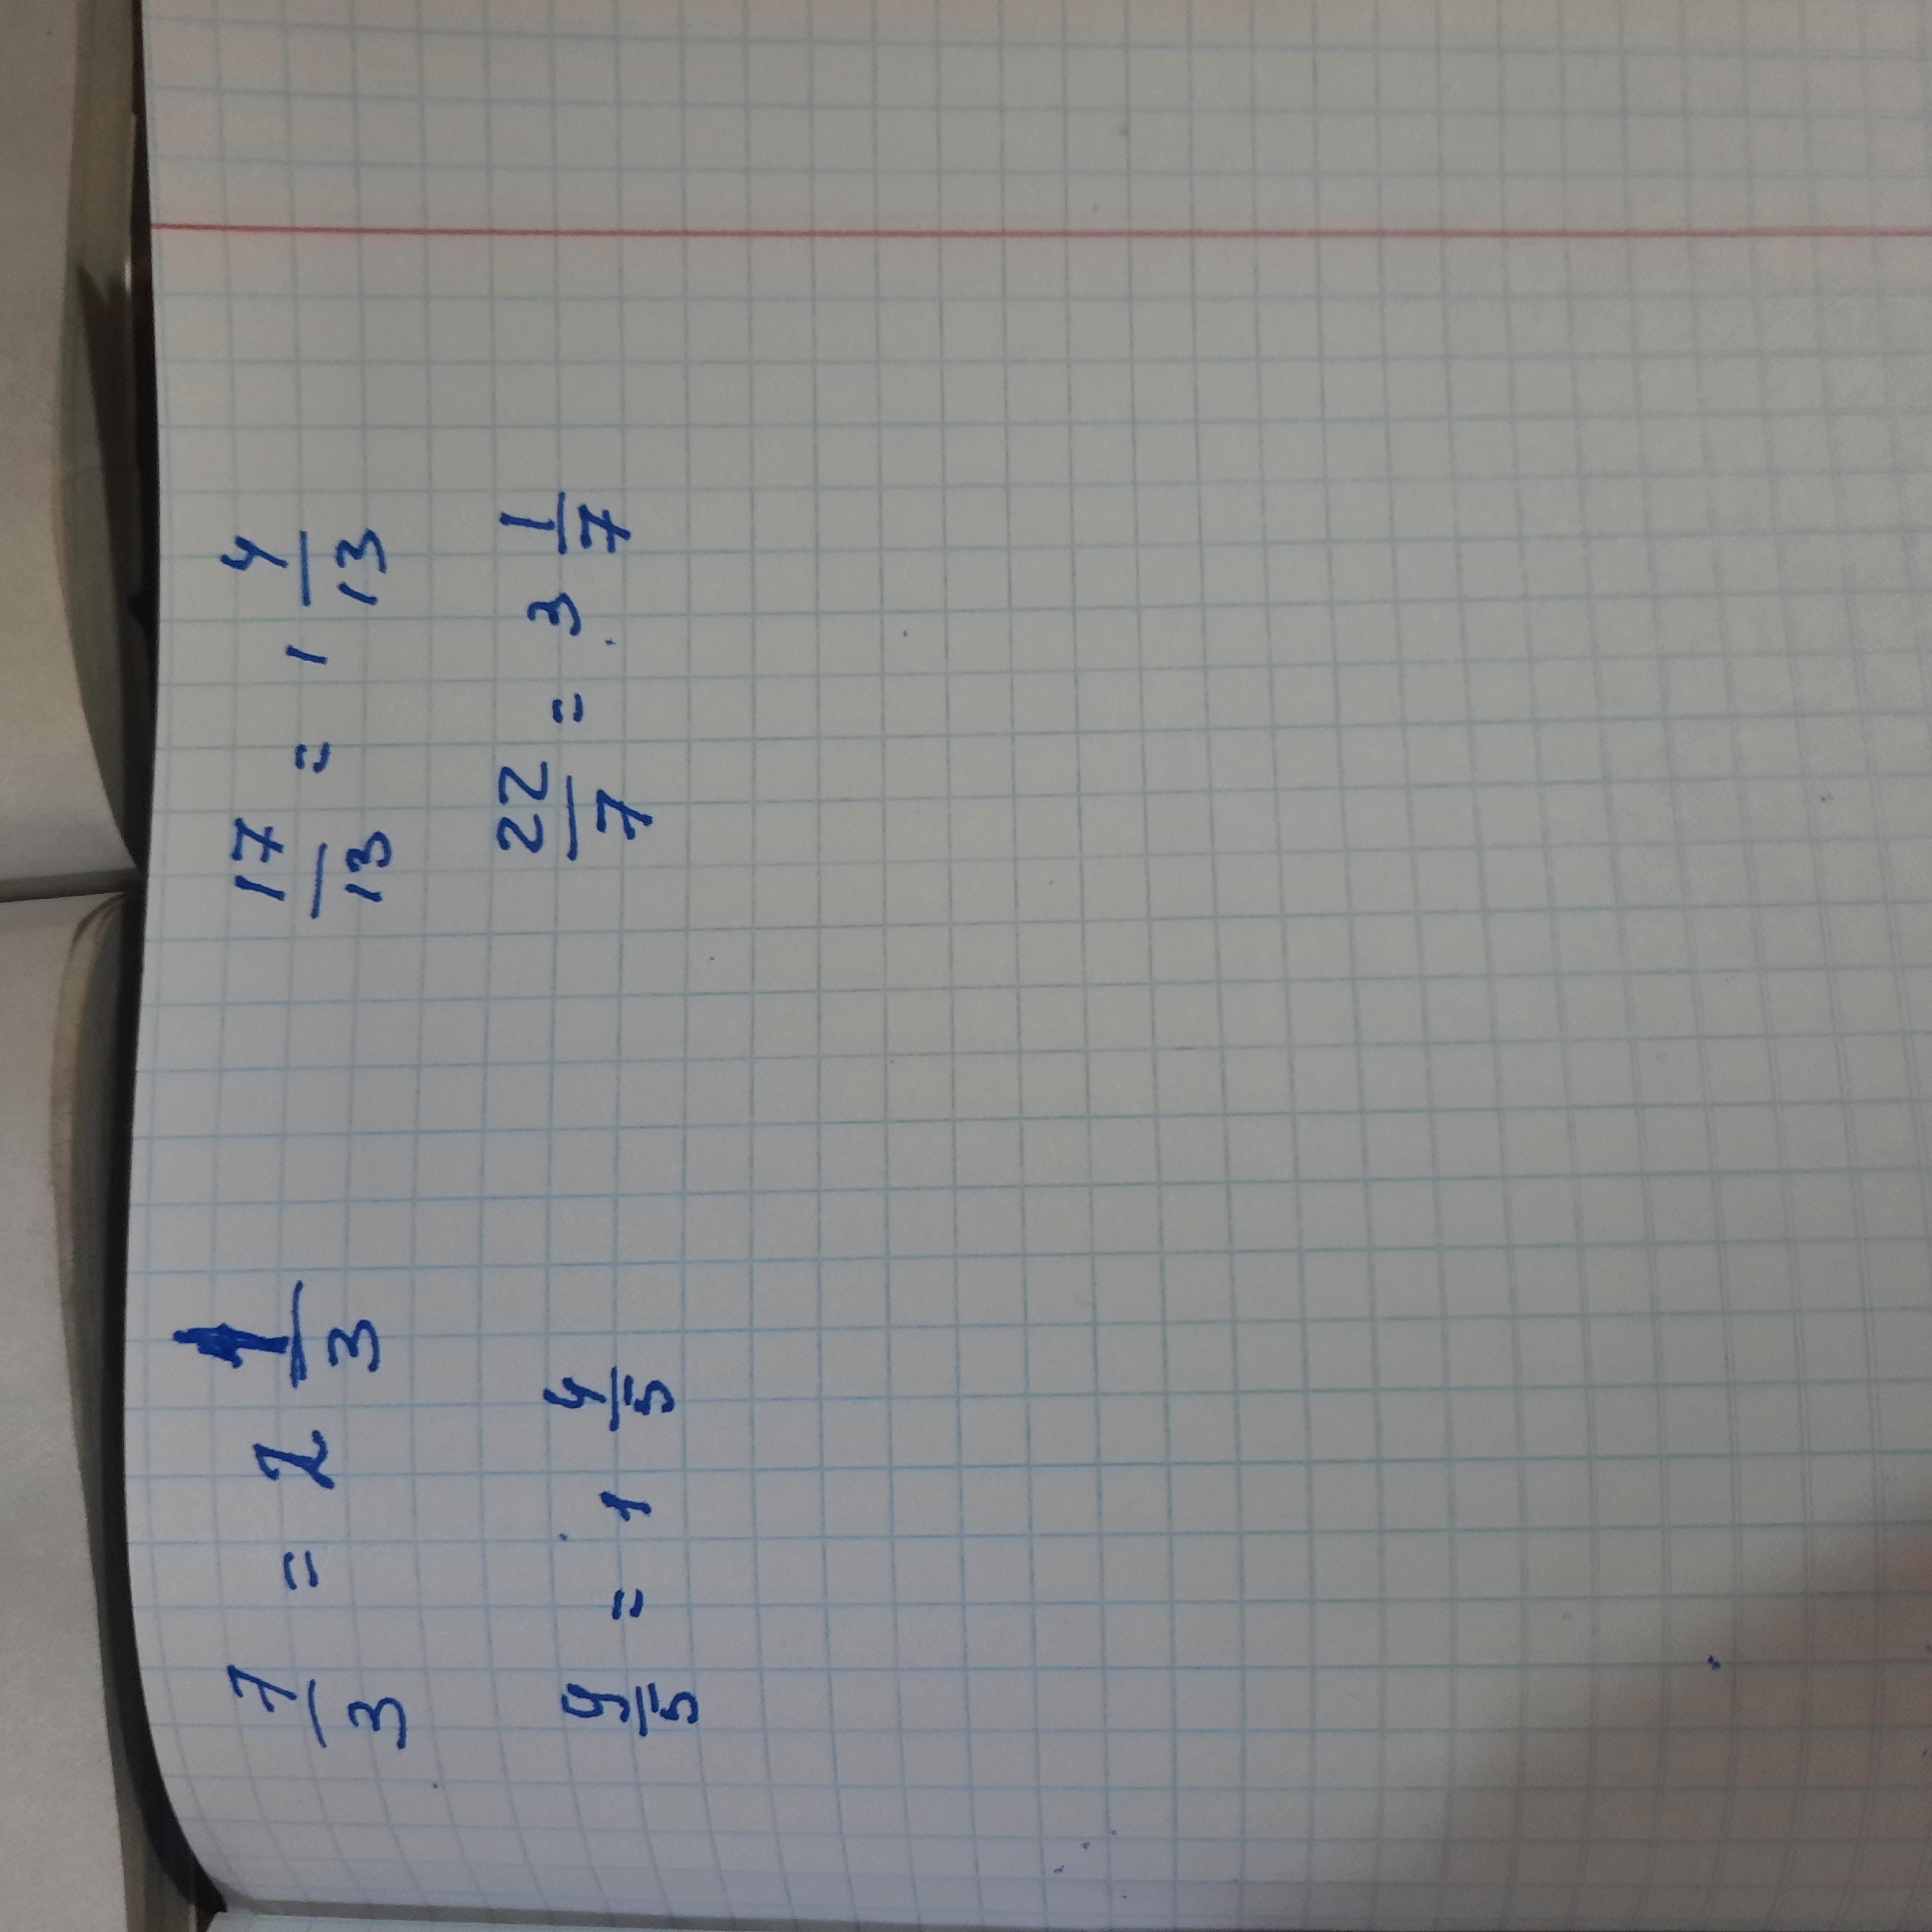 7/3 = 2 1/3 17/13 = 1 4/13
9/5 = 1 4/5 22/7 = 3 1/7